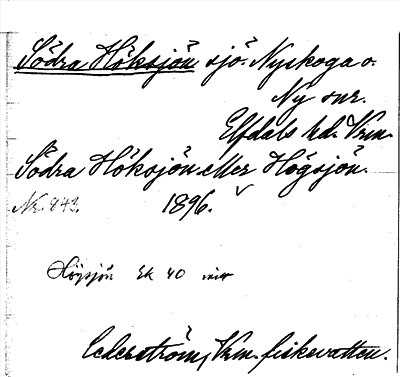 Södra Höksjön sjö. Nyskoga o.
Ny snr.
Elfdals hd. Vrm.
Södra Höksjön eller Högsjön.
Nr. 443. 1896.
Högsjön Ek 40
Cederström, Vrm. fiskevatten.